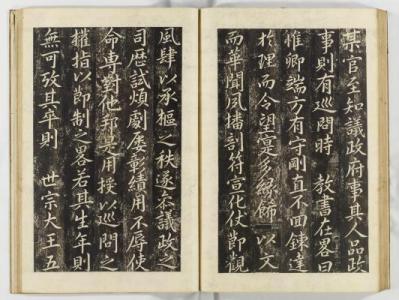 某官至知議政府事其人品政
事則有巡問時 教書在畧曰
惟卿端方有守剛直不回鍊達
於理而令望寔多緣飾 以文
而華聞夙播剖符宣化仗節觀
風肆以承樞之秩遂叅議政之
司歷試煩劇屢彰績用不辱使
命專對他邦是用授以巡問之
權指以節制之畧若其生年則
無可攷其卒則 世宗大王五